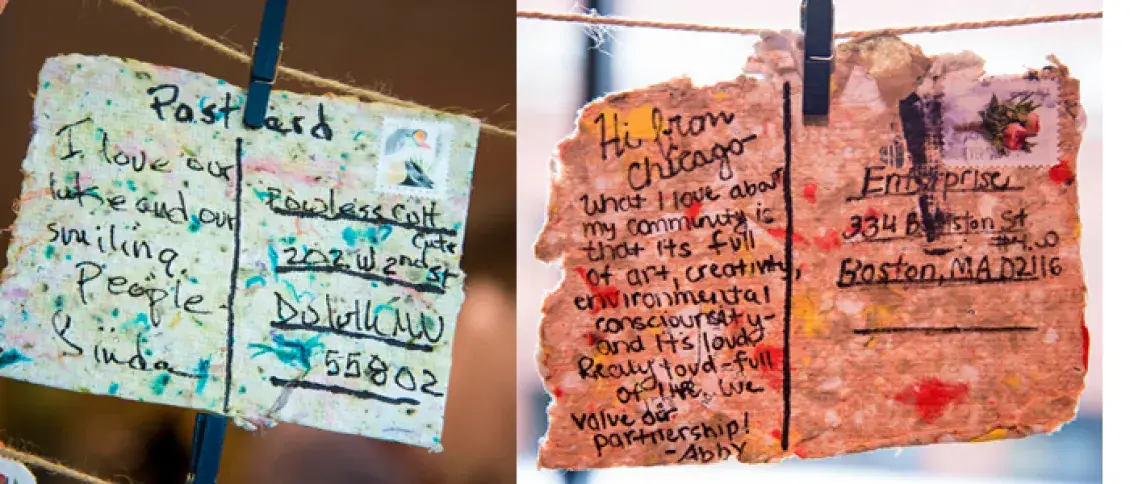 Postcard
I love our
lake and our
smiling
People
Linda
Powless Cult
Cntr
202 W 2nd St
Duluth MN
55802
Hi from
Chicago-
What I love about
my community is
that its full
of art, creativity,
environmental
and its loud
Really loud-full
of life. We
value our
partnership!
-Abby
Enterprise
334 St
$4.00
Boston, MA 02116